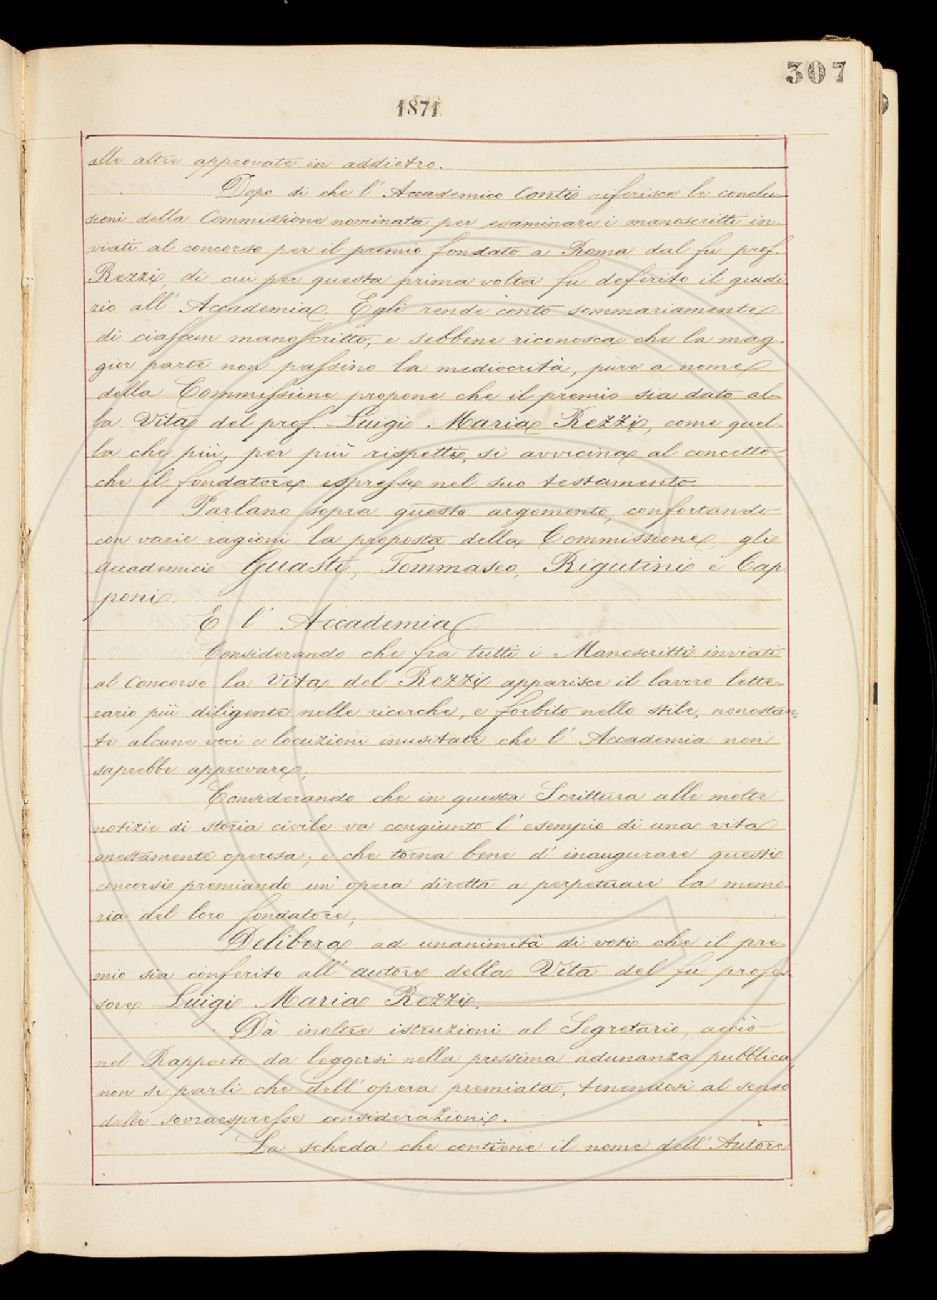 307
1871
alle altre approvate in addietro.
Dopo di che l' Accademico Conti riferisce le conclu-
sioni della Commissione nominata per esaminare i manoscritti in-
viati al concorso per il premio fondato a Roma dal fu prof.
Rezzi, di cui per questa prima volta fu deferito il giudi
zio all' Accademia. Egli rende conto sommariamente
di ciascun manoscritto, e sebbene riconosca che la mag-
gior parte non passino la mediocrità, pure a nome
della Commissione propone che il premio sia dato al-
la Vita del prof. Luigi Maria Rezzi, come quel-
la che più, per più rispetti, si avvicina al concetto
che il fondatore espresse nel suo testamento
Parlano sopra questo argomento, confortando
con varie ragioni la proposta della Commissione, gli
Accademici Guasti, Tommaseo, Rigutini e Cap
poni.
E l' Accademia
Considerando che fra tutti i Manoscritti inviati
al Concorso la Vita del Rezzi apparisce il lavoro lette-
rario più diligente nelle ricerche, e forbito nello stile, nonostan-
te alcune voci e locuzioni inusitate che l' Accademia non
saprebbe approvare;
Considerando che in questa Scrittura alle molte
notizie di storia civile va congiunto l' esempio di una vita
onestamente operosa; e che torna bene d' inaugurare questi
concorsi premiando un' opera diretta a perpetuare la memo
ria del loro fondatore;
Delibera ad unanimità di voti che il pre-
mio sia conferito all' autore della Vita del fu profes-
sore Luigi Maria Rezzi.
Dà inoltre istruzioni al Segretario, acciò
nel Rapporto da leggersi nella prossima adunanza pubblica,
non si parli che dell' opera premiata, tenendosi al senso
delle sovraespresse considerazioni.
La scheda che contiene il nome dell' Autore